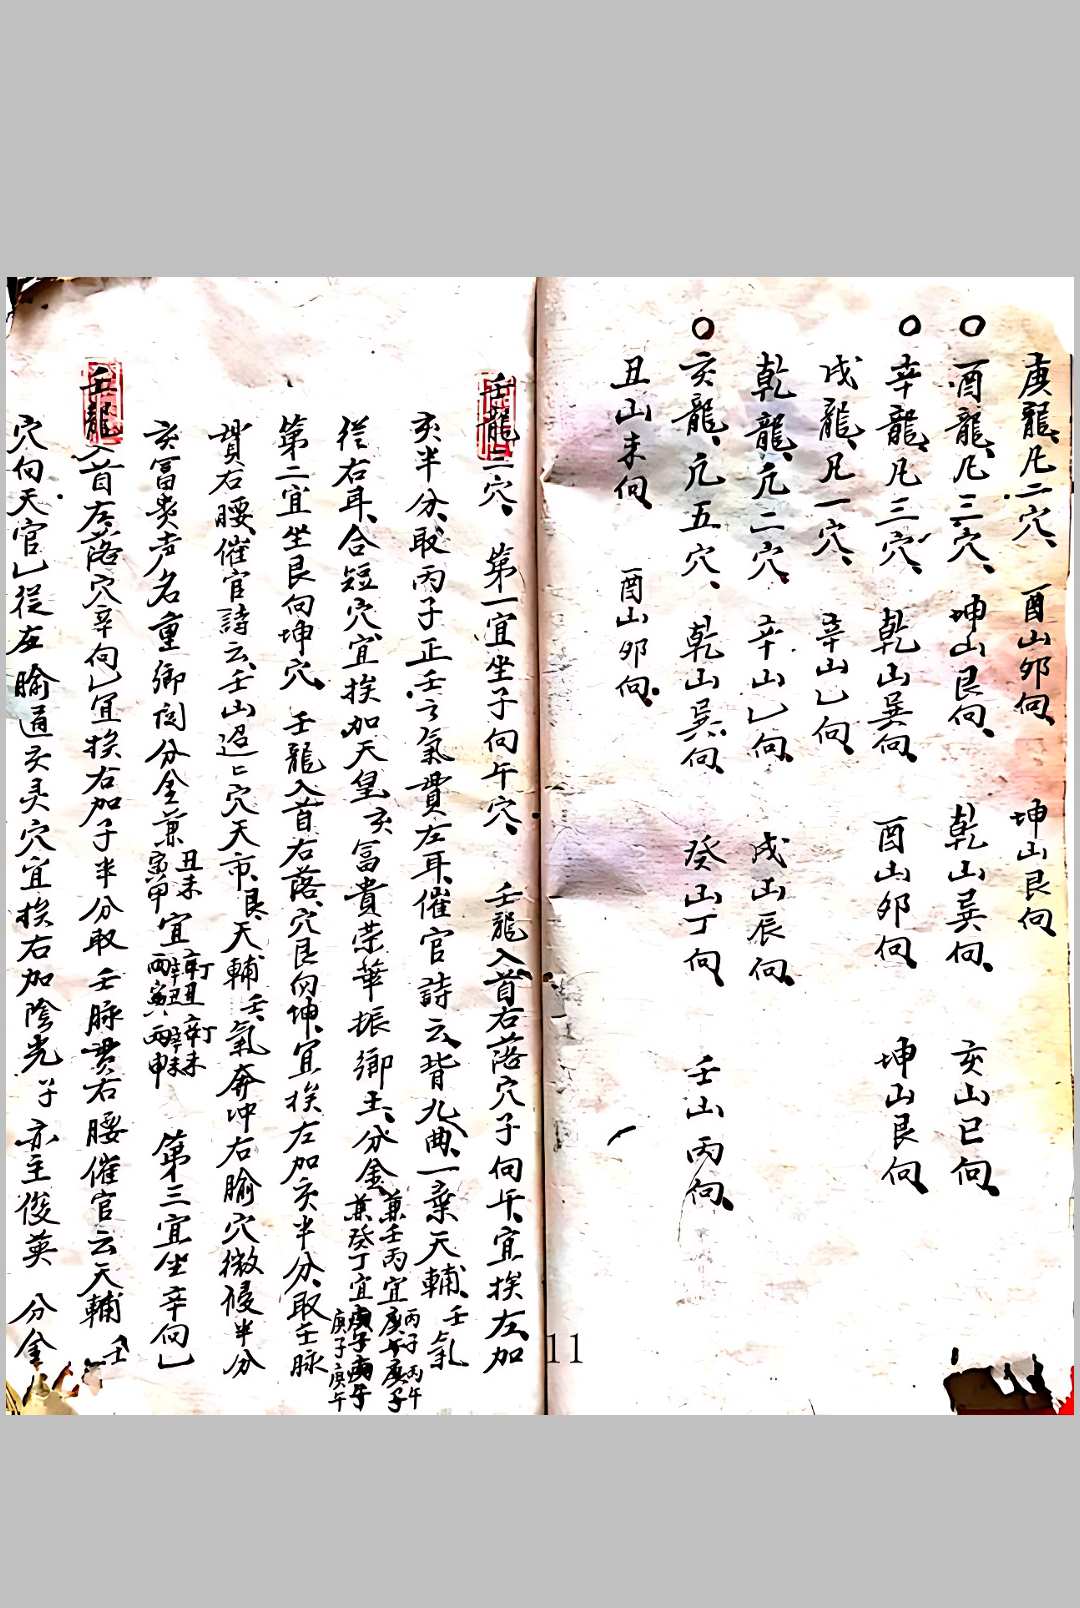 庚龍、凡二穴、 酉山夘向、 坤山艮向
○ 酉龍、凡三穴、 坤山艮向、 乾山巽向、 亥山巳向、
○ 辛龍、凡三穴、 乾山巽向、 酉山夘向、 坤山艮向、
戌龍、凡一穴、 辛山乙向、
乾龍、凡二穴、 辛山乙向、 戌山辰向、
○ 亥龍、凡五穴、 乾山巽向、 癸山丁向、 壬山丙向、
丑山未向、 酉山夘向、
壬龍三穴、 第一宜坐子向午穴、 壬龍入首右落穴子向午、宜挨左、加
亥半分、取丙子正壬之氣貫左耳、催官詩云、背九曲、一乗天輔、壬氣
從右耳、合短穴宜挨加天皇亥富貴荣華振鄉土、分金兼壬丙宜
兼癸丁宜
第二宜坐艮向坤穴、 壬龍入首右落、穴艮向坤、宜挨左加亥半分、取壬脉
貫右腰、催官詩云、壬山迢〻穴天市、艮天輔壬氣奔冲右腧穴微侵半分
亥富贵声名重鄉闾分金兼丑未寅甲宜 丙寅丙申 第三宜坐辛向乙
壬龍入首右落穴辛向乙宜挨右加子半分取壬脉貫右腰催官云天輔壬
穴向天官乙從左腧通 穴宜挨右加陰光子亦主俊英 分金
11